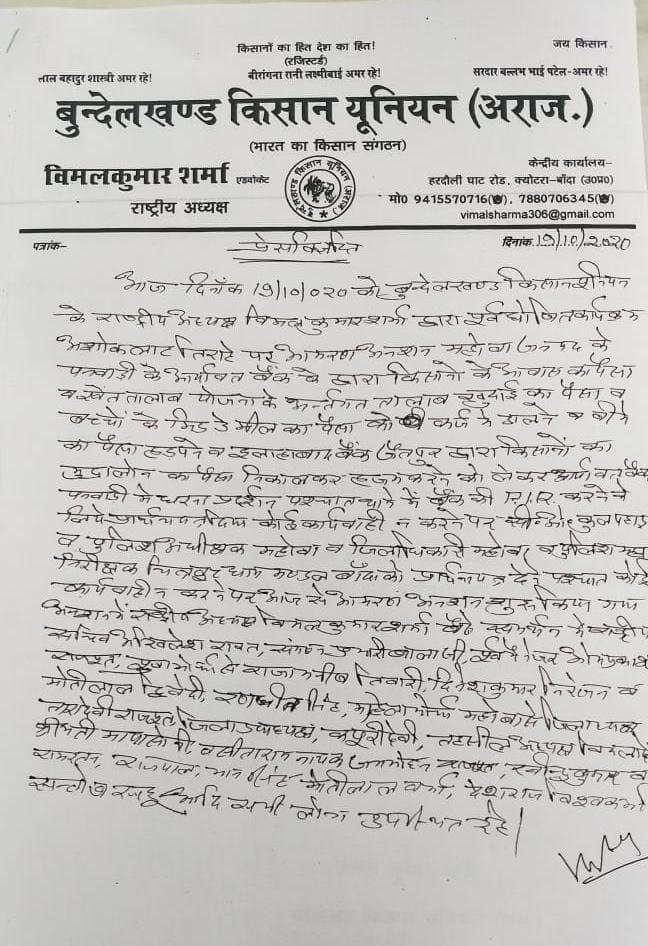 किसानों का हित देश का हित!
जय किसान
(रजिस्टर्ड)
लाल बहादुर शास्त्री अमर रहे!
बीरांगना रानी लक्ष्मीबाई अमर रहे!
सरदार बल्लभ भाई पटेल-अमर रहे!
बुन्देलखण्ड किसान यूनियन (अराज.)
(भारत का किसान संगठन)
विमलकुमार शर्मा एडवोकेट
राष्ट्रीय अध्यक्ष
केन्द्रीय कार्यालय-
हरदौली घाट रोड, क्योटरा-बाँदा (उ०प्र०)
मो० 9415570716, 7880706345
vimalsharma306@gmail.com
पत्रांक-
प्रेसविज्ञप्ति
दिनांक 19/10/2020
आज दिनाँक 19/10/020 को बुन्देलखण्ड किसान यूनियन
के राष्ट्रीय अध्यक्ष विमल कुमार शर्मा द्वारा पूर्व घोषित कार्यक्रम
अशोक लाट तिराहे पर आमरण अनशन महोबा जनपद के
पनवाड़ी के आर्यावर्त बैंक के द्वारा किसानों के आवास का पैसा
व खेत तालाब योजना के अन्तर्गत तालाब खुदाई का पैसा व
बच्चों के मिड डे मील का पैसा को कर्ज में डालने व बीमे
का पैसा हड़पने व इलाहाबाद बैंक जैतपुर द्वारा किसानों का
मुद्रा लोन का पैसा निकालकर हजम करने को लेकर आर्यावर्त बैंक
पनवाड़ी में धरना प्रदर्शन पश्चात थाने में बैंक की F.I.R. करने के
लिये प्रार्थना पत्र दिया कोई कार्यवाही न करने पर सी० ओ० कुलपहाड़
व पुलिश अधीक्षक महोबा व जिलाधिकारी महोबा व पुलिश महा
निरीक्षक चित्रकूट धाम मण्डल बाँदा को प्रार्थना पत्र देने पश्चात कोई
कार्यवाही न करने पर आज से आमरण अनशन शुरू किया गया
अनशन में राष्ट्रीय अध्यक्ष विमल कुमार शर्मा बैठे समर्थन में राष्ट्रीय
सचिव अखिलेश रावत, बालाजी, पूर्व मेजर ओमप्रकाश
राजपूत, युवा मोर्चा से राजा मनीष तिवारी, दिनेश कुमार निरंजन व
मोतीलाल द्विवेदी, रणजीत सिंह, महिला मोर्चा महोबा से जिलाध्यक्ष
तारादेवी राजपूत, जिला उपाध्यक्ष, कपूरी देवी, तहसील अध्यक्ष
श्रीमती माया सैनी, व सीताराम नायक जगमोहन राजपूत, रवीन्द्र कुमार व
रामरतन, राजपाल, मान सिंह मोतीलाल वर्मा, देशराज विश्वकर्मा
सन्तोष आदि सभी लोग उपस्थित रहे।